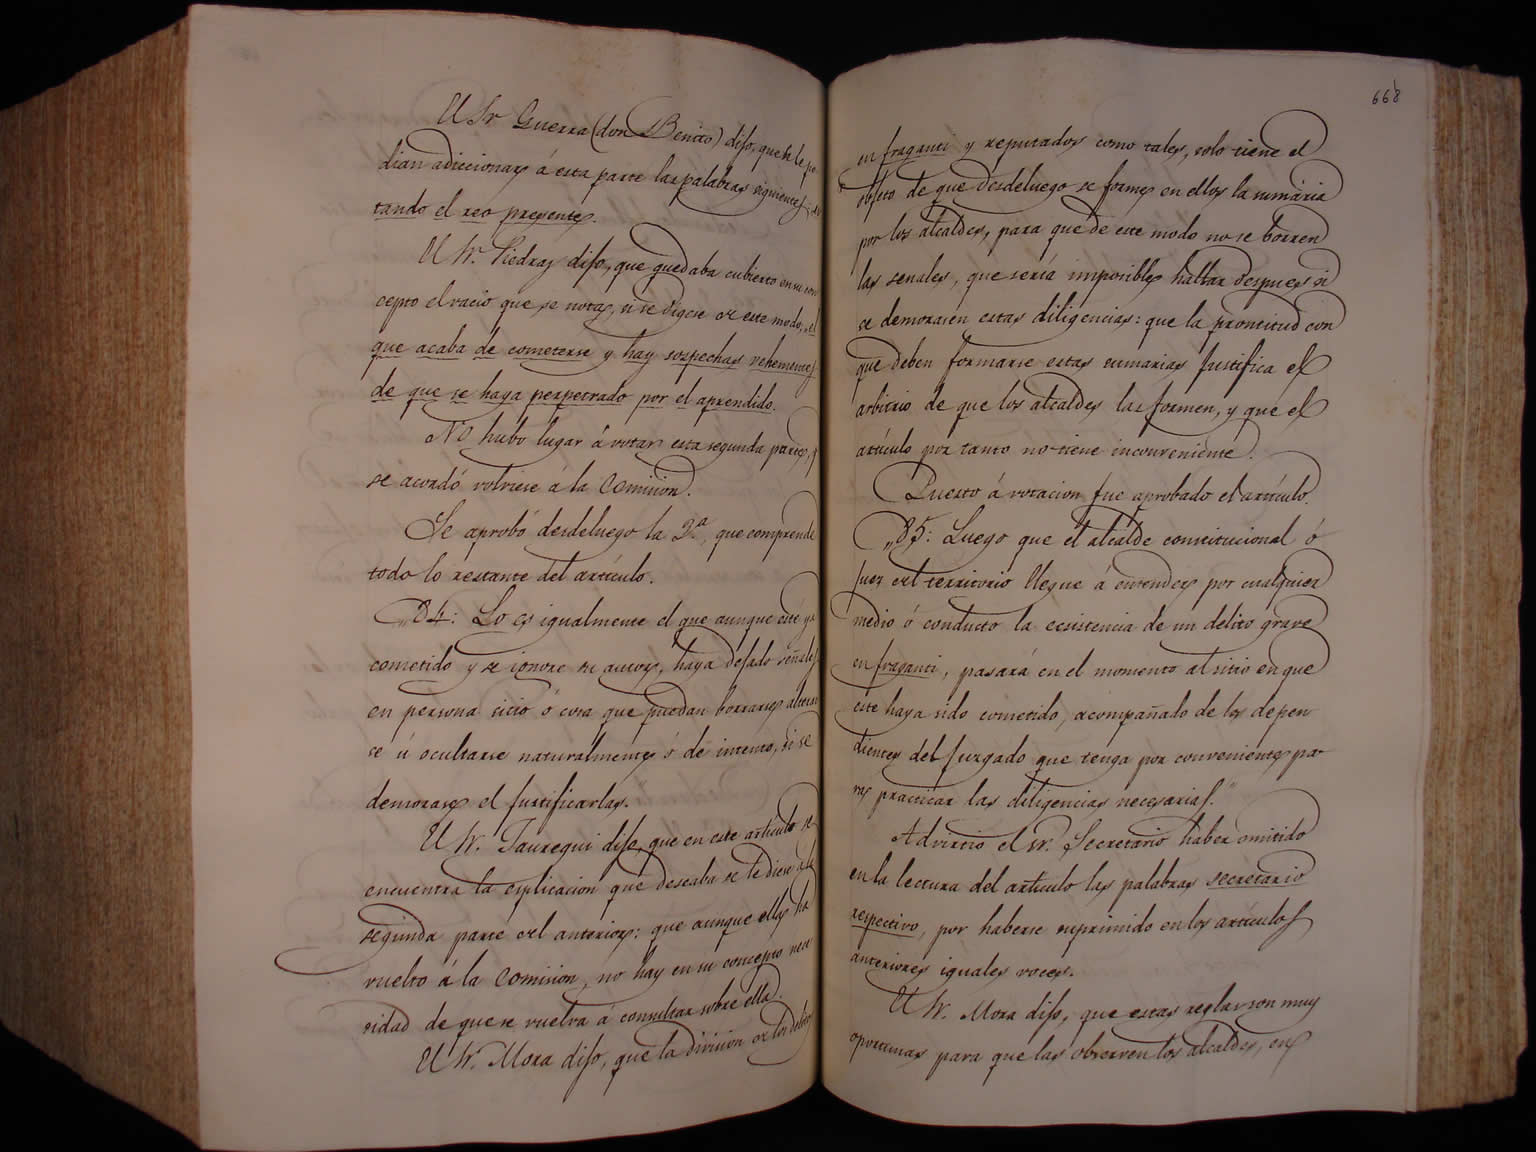 El Sr Guerra (don Benito) dijo, que se le po-
dian adiccionar á esta parte las palabras siguientes: es-
tando el reo presente.
El Sr. Piedras dijo, que quedaba cubierto en su con
cepto el vacio que se nota, si se digese de este modo, el
que acaba de cometerse y hay sospechas vehementes
de que se haya perpetrado por el aprendido.
No hubo lugar á votar esta segunda parte, y
se acordó volviese á la Comision.
Se aprobó desdeluego la 2.a, que comprende
todo lo restante del artículo.
„84: Lo es igualmente el que aunque esté ya
cometido y se ignore su autor, haya dejado señales
en persona sicio ó cosa que puedan borrarse alterar
se ú ocultarse naturalmente ó de intento, si se
demorase el justificarlas.
El Sr. Jauregui dijo, que en este artículo se
encuentra la esplicacion que deseaba se le diese á la
segunda parte del anterior: que aunque ella ha
vuelto á la Comision, no hay en su concepto nece
sidad de que se vuelva á consultar sobre ella.
El Sr. Mora dijo, que la division de los delitos
668
en fraganti y reputados como tales, solo tiene el
objeto de que desdeluego se forme en ellos la sumária
por los alcaldes, para que de este modo no se borren
las senales, que sería imposible hallar despues si
se demorasen estas diligencias: que la prontitud con
que deben formarse estas sumarias justifica el
arbitrio de que los alcaldes las formen, y que el
artículo por tanto no tiene inconveniente.
Puesto á votacion fue aprobado el artículo.
„85: Luego que el alcalde constitucional ó
juez del territorio llegue á entender por cualquier
medio ó conducto la ecsistencia de un delito grave
en fraganti, pasará en el momento al sitio en que
este haya sido cometido, acompañado de los depen
dientes del juzgado que tenga por conveniente pa-
ra practicar las diligencias necesarias."
Advirtio el Sr. Secretario haber omitido
en la lectura del artículo las palabras secretario
respectivo, por haberse suprimido en los artículos
anteriores iguales voces.
El Sr. Mora dijo, que estas reglas son muy
oportunas para que las observen los alcaldes, en